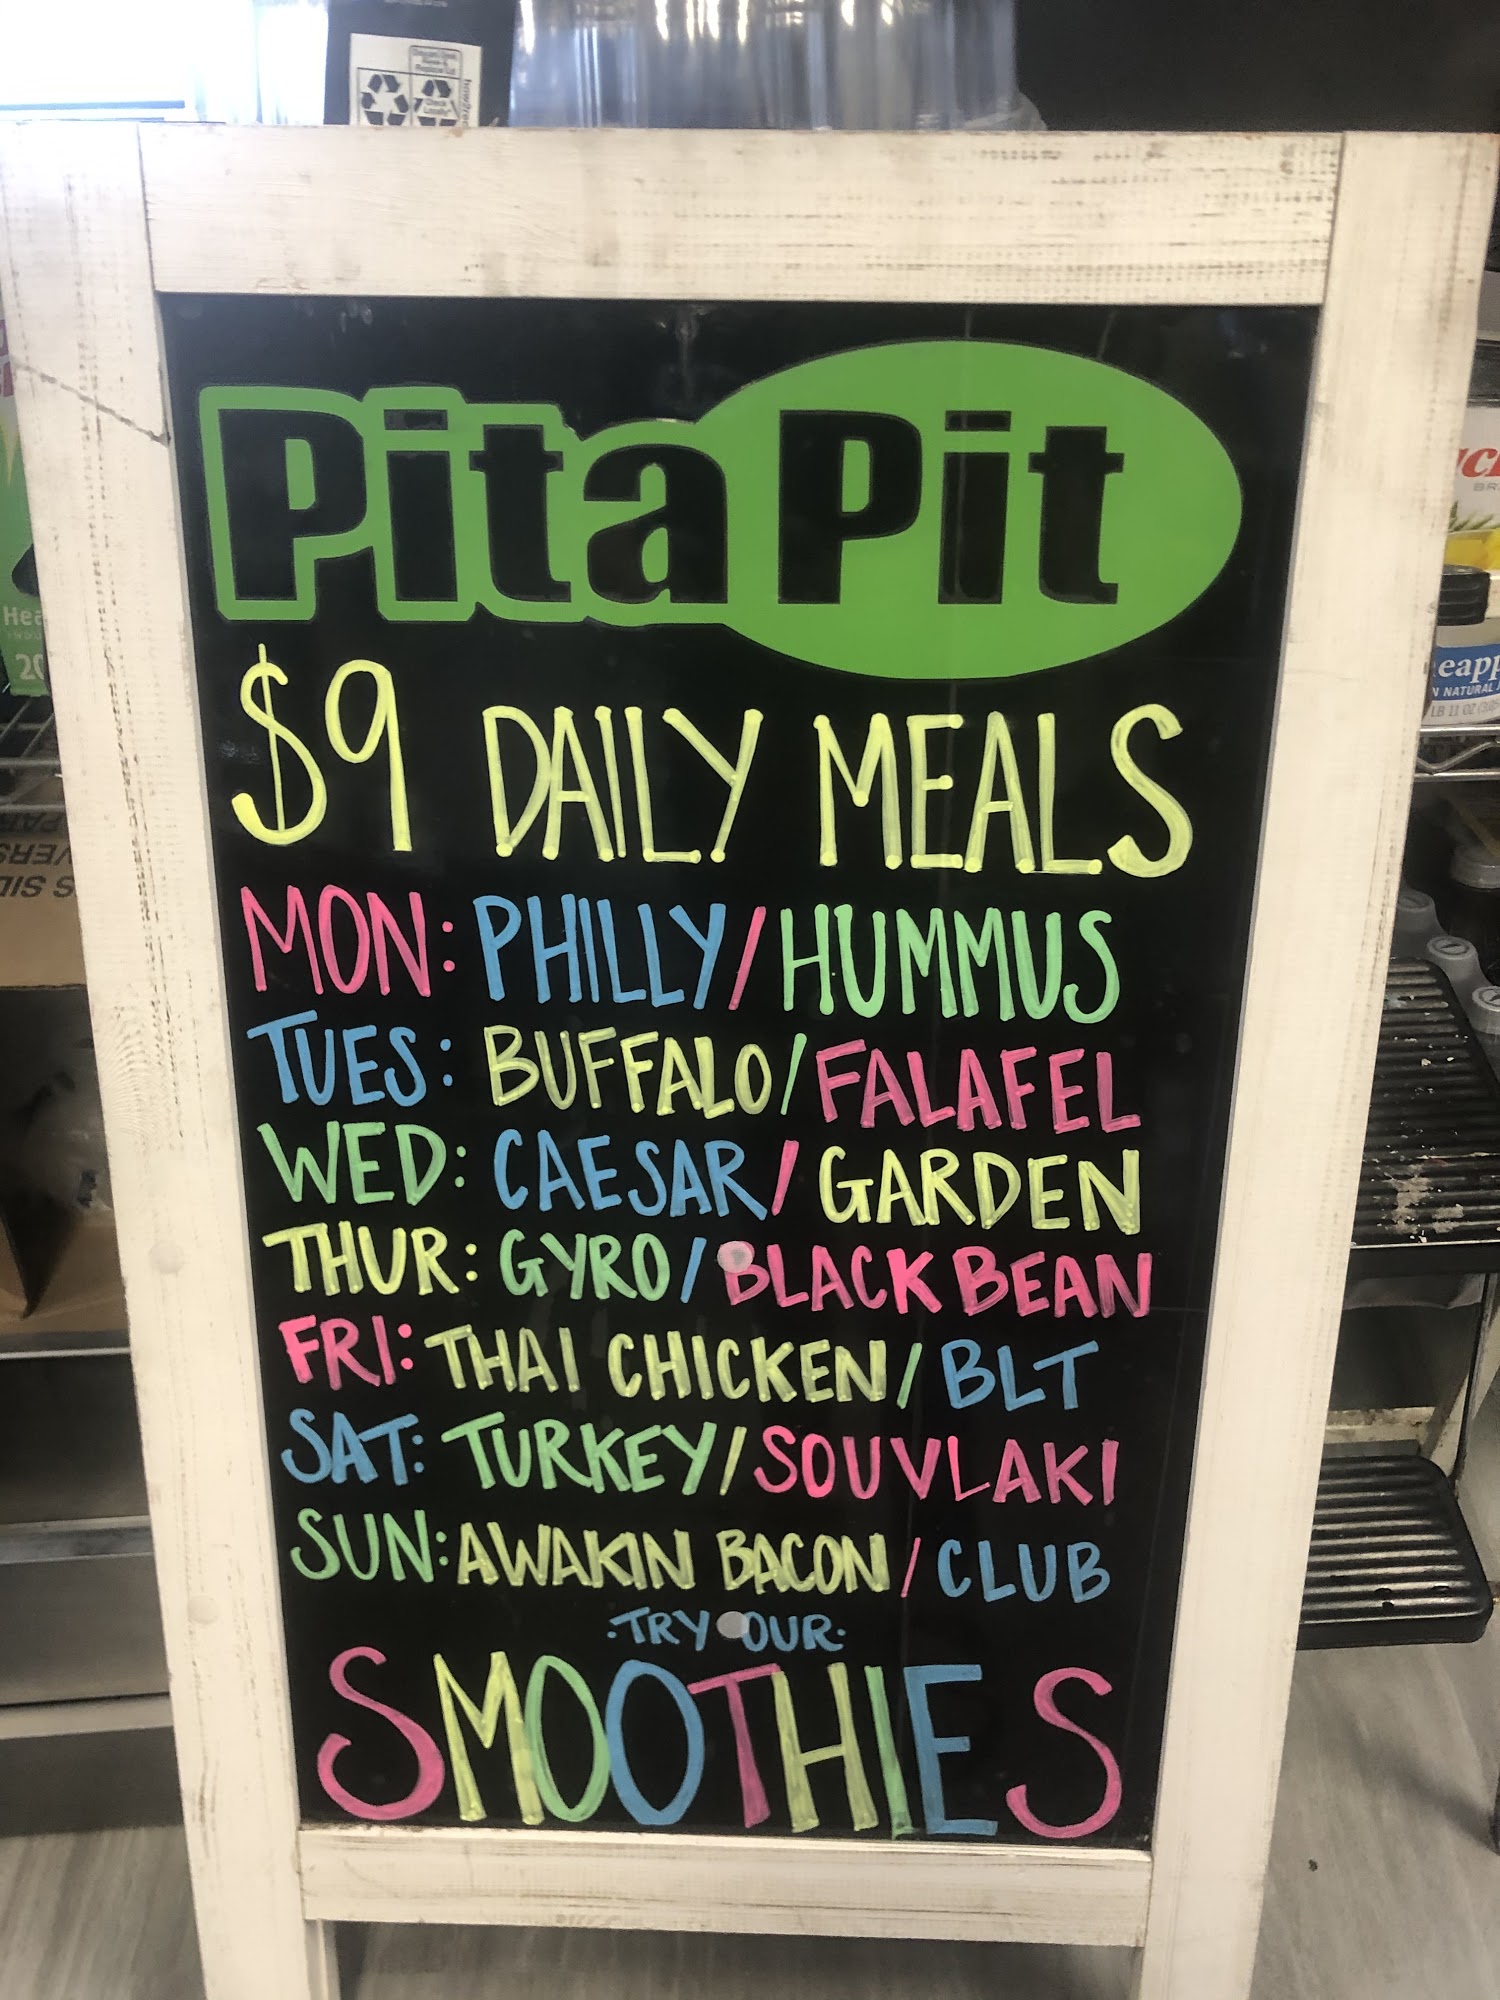 Pita Pit
$9 DAILY MEALS
MON: PHILLY/HUMMUS
TUES: BUFFALO/FALAFEL
WED: CAESAR/GARDEN
THUR: GYRO/BLACK BEAN
FRI: THAI CHICKEN/BLT
SAT: TURKEY/SOUVLAKI
SUN: AWAKIN BACON/CLUB
·TRY OUR·
SMOOTHIES